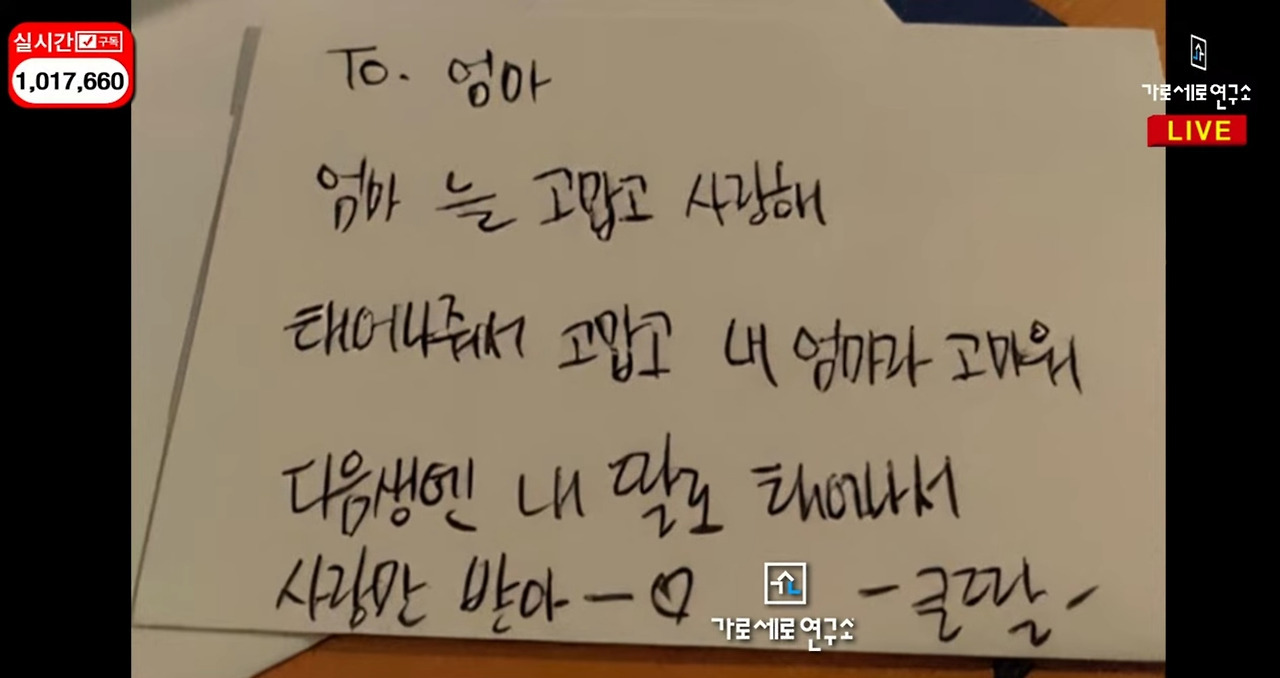 실시간 구독
1,017,660
가로세로연구소
LIVE
To. 엄마
엄마 늘 고맙고 사랑해
태어나줘서 고맙고 내 엄마라 고마워
다음생엔 내 딸로 태어나서
사랑만 받아-♡
-큰딸-
가로세로연구소